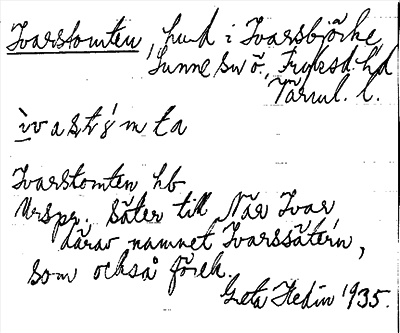 Ivarstomten, hmd i Ivarsbjörke,
Sunne sn ö., Fryksd. hd
Värml. l.
ìvastǿmta
Ivarstomten hb
Urspr. säter till När Ivar,
därav namnet Ivarssätern,
som också förek.
Greta Hedin 1935.